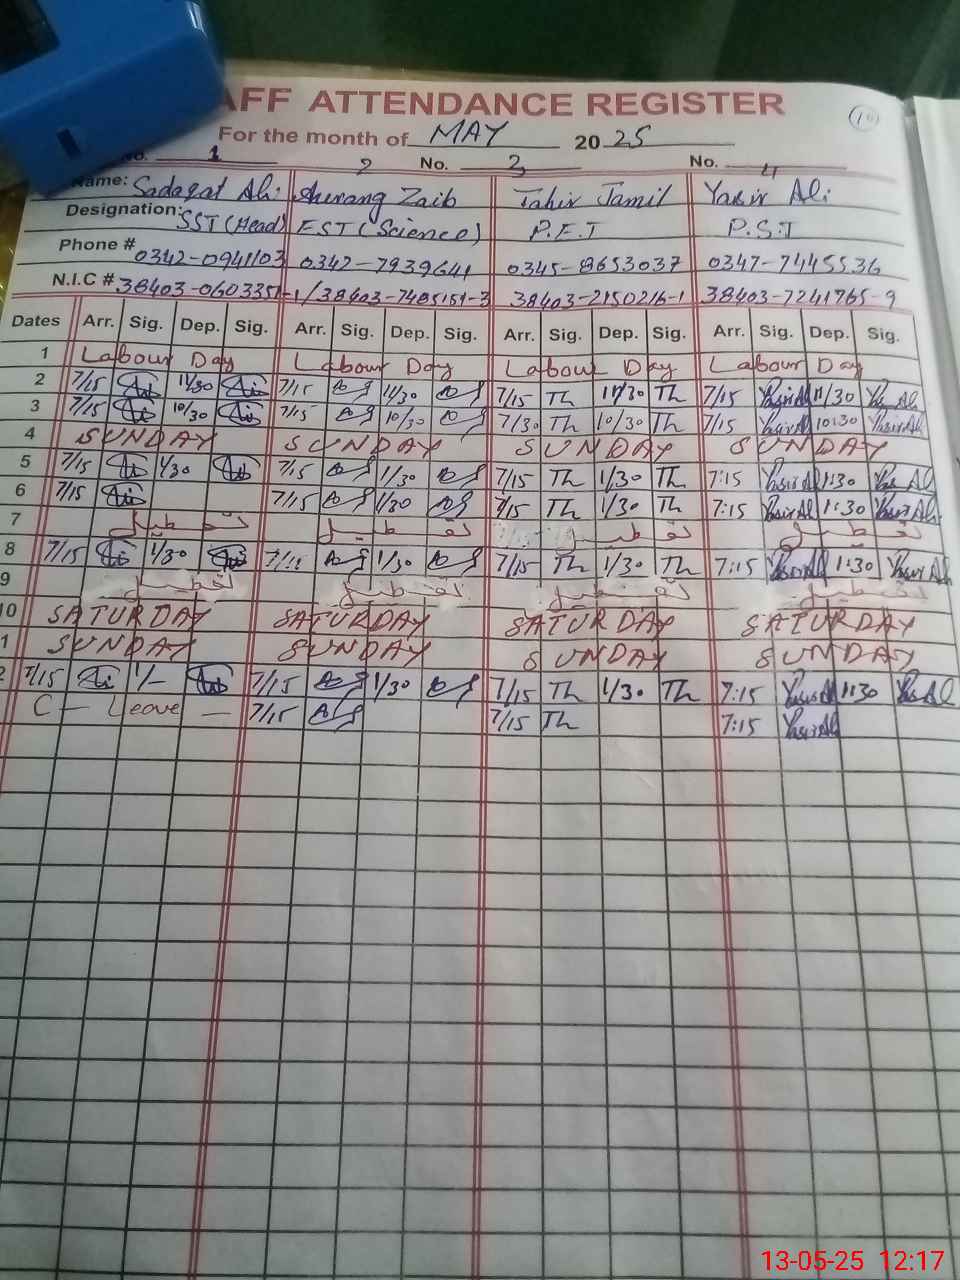 AFF ATTENDANCE REGISTER 10
For the month of MAY 2025
No. 1 2 No. 3 No. 4
Name: Sadaqat Ali Aurang Zaib Tahir Jamil Yasir Ali
Designation: SST (Head) EST (Science) P.E.T P.S.T
Phone # 0342-0941103 0342-7939641 0345-8653037 0347-7445536
N.I.C # 38403-0603351-1 / 38403-7405151-3 38403-2150216-1 38403-7241765-9
Dates Arr. Sig. Dep. Sig. Arr. Sig. Dep. Sig. Arr. Sig. Dep. Sig. Arr. Sig. Dep. Sig.
1 Labour Day Labour Day Labour Day Labour Day
2 7/15 11/30 7/15 11/30 7/15 Th 11/30 Th 7/15 Yasir Ali 11/30 Yasir Ali
3 7/15 10/30 7/15 10/30 7/30 Th 10/30 Th 7/15 Yasir Ali 10:30 Yasir Ali
4 SUNDAY SUNDAY SUNDAY SUNDAY
5 7/15 1/30 7/15 1/30 7/15 Th 1/30 Th 7:15 Yasir Ali 1:30 Yasir Ali
6 7/15 7/15 1/30 7/15 Th 1/30 Th 7:15 Yasir Ali 1:30 Yasir Ali
7 تعطیل تعطیل تعطیل تعطیل
8 7/15 1/30 7/15 1/30 7/15 Th 1/30 Th 7:15 Yasir Ali 1:30 Yasir Ali
9 تعطیل تعطیل تعطیل تعطیل
10 SATURDAY SATURDAY SATURDAY SATURDAY
1 SUNDAY SUNDAY SUNDAY SUNDAY
2 7/15 1/- 7/15 1/30 7/15 Th 1/30 Th 7:15 Yasir Ali 1:30 Yasir Ali
C - Leave - 7/15 7/15 Th 7:15 Yasir Ali
13-05-25 12:17